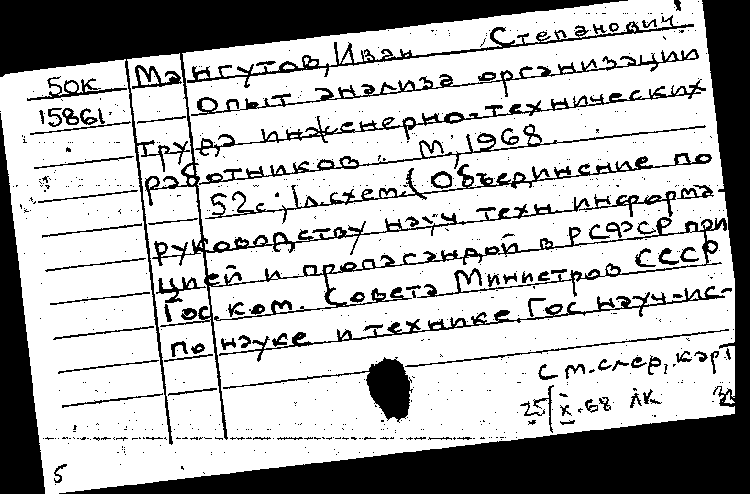 50К
15861
Мангутов, Иван Степанович
Опыт анализа организации
труда инженерно-технических
работников. М., 1968.
52с.; 1л.схем. (Объединение по
руководству науч. техн. информа-
цией и пропагандой в РСФСР при
Гос. ком. Совета Министров СССР
по науке и технике. Гос. науч-ис-
См. след. карт
25/X-68 ЛК
5